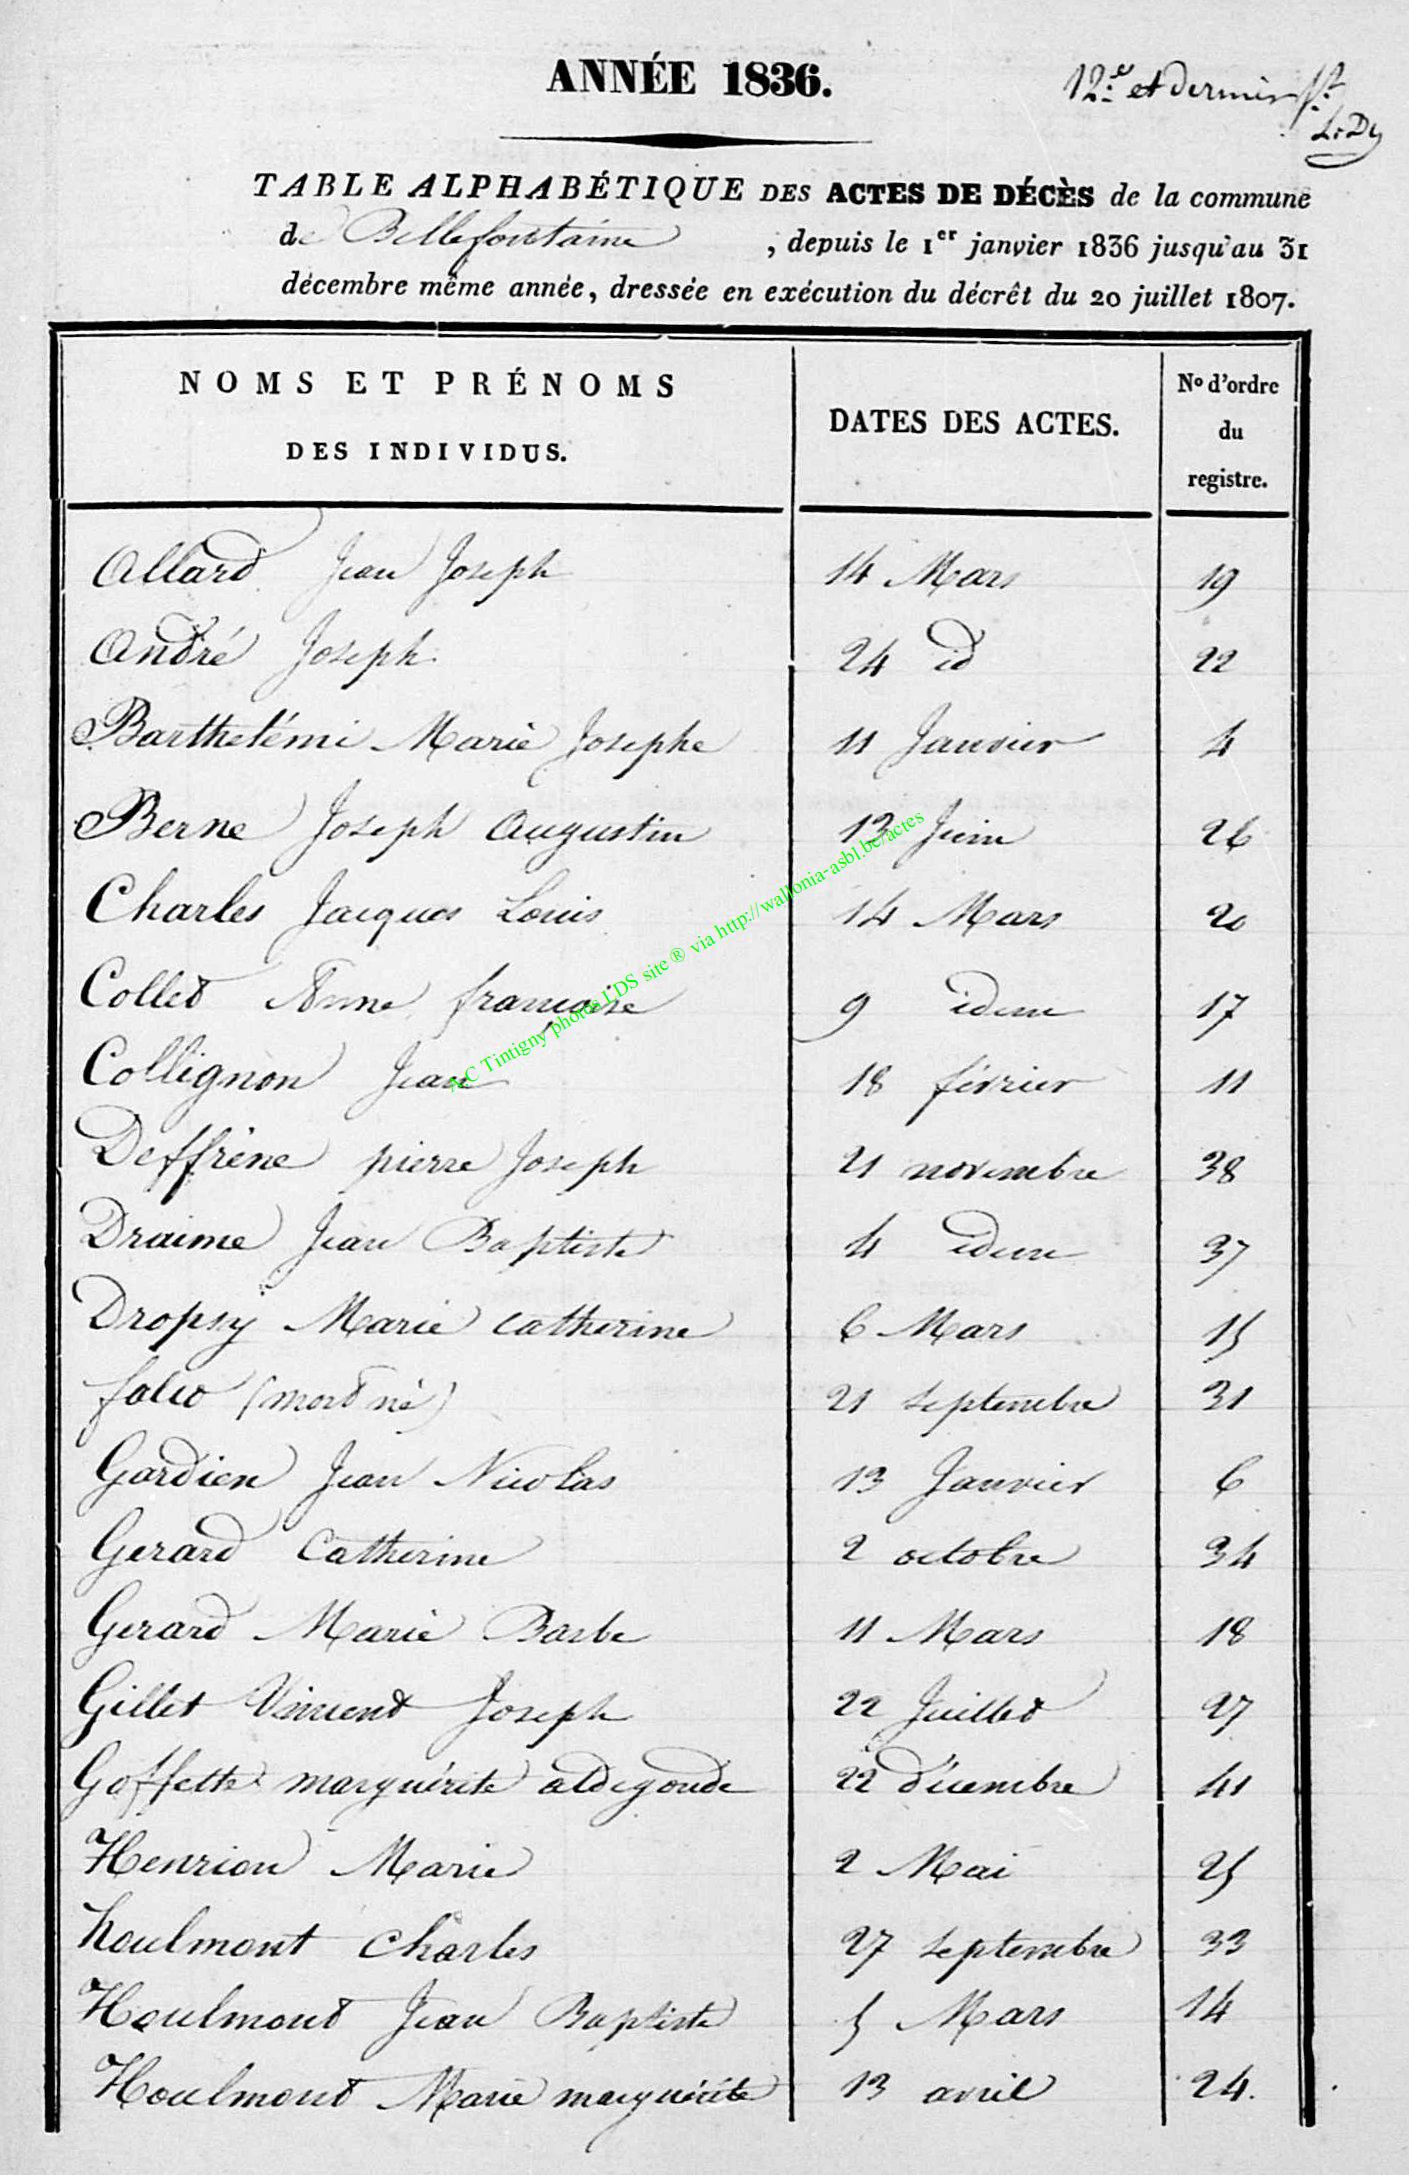 ANNÉE 1836.
12.e et dernier f.t
L. Dy
TABLE ALPHABÉTIQUE DES ACTES DE DÉCÈS de la commune
de Bellefontaine , depuis le 1er janvier 1836 jusqu'au 31
décembre même année, dressée en exécution du décrêt du 20 juillet 1807.
NOMS ET PRÉNOMS
DES INDIVIDUS.
DATES DES ACTES.
No d'ordre
du
registre.
Allard Jean Joseph 14 Mars 19
André Joseph 24 id 22
Barthelémi Marie Josephe 11 Janvier 4
Berne Joseph Augustin 13 Juin 26
Charles Jacques Louis 14 Mars 20
Collet Anne françoise 9 idem 17
Collignon Jean 18 février 11
Deffrène pierre Joseph 21 novembre 38
Draime Jean Baptiste 4 idem 37
Dropsy Marie catherine 6 Mars 15
(mort né) 21 septembre 31
Gardien Jean Nicolas 13 Janvier 6
Gerard Catherine 2 octobre 34
Gerard Marie Barbe 11 Mars 18
Gillet Vincent Joseph 22 Juillet 27
Goffette marguérite aldegonde 22 décembre 41
Henrion Marie 2 Mai 25
houlmont Charles 27 septembre 33
Houlmont Jean Baptiste 5 Mars 14
Houlmont Marie marguérite 13 avril 24.
AC Tintigny photos LDS site ® via http://wallonia-asbl.be/actes